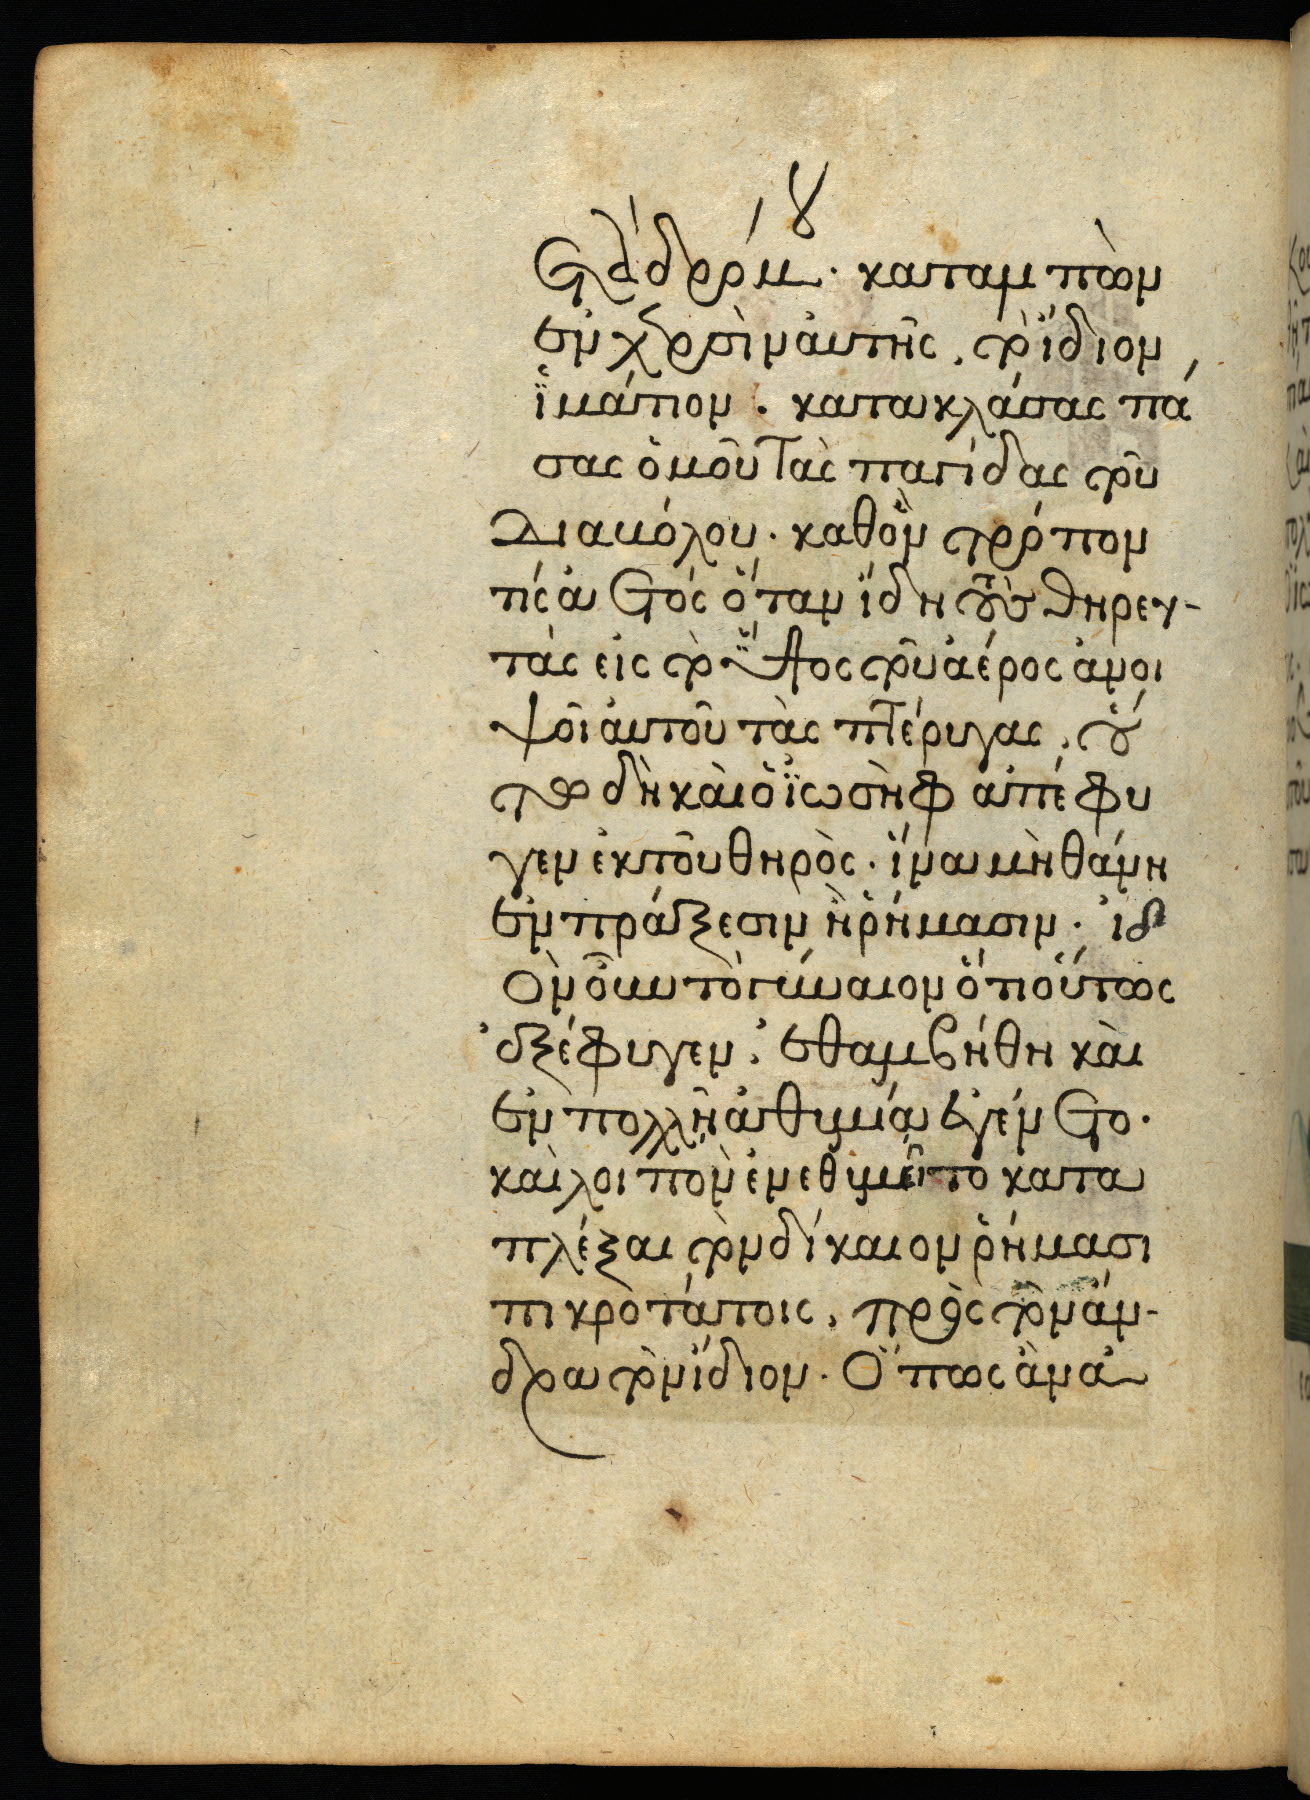 Ἐξέδραμε· καταλιπὼν
ἐν χερσὶν αὐτῆς, τὸ ἴδιον
ἱμάτιον. κατακλάσας πά
σας ὁμοῦ τὰς παγίδας τοῦ
Διαβόλου. καθὃν τρόπον
τίς ἀετός ὅταν ἴδη τοὺς θηρευ-
τὰς εἰς τὸ ὕψος τοῦ ἀέρος ἀνοι
ψοῖ αὐτοῦ τὰς πτέρυγας, οὕ
τω δὴ καὶ ὁ ἰωσὴφ ἀπέφυ
γεν ἐκ τοῦ θηρὸς. ἵνα μὴ θάνη
ἐν πράξεσιν ἢ ῥήμασιν. ἰδ
ὸν οὖν τὸ γύναιον ὅτι οὕτως
ἐξέφυγεν, ἐθαμβήθη καὶ
ἐν πολλῆ ἀθυμία ἐγένετο.
καὶ λοιπὸν ἐνεθυμεῖτο κατα
πλέξαι τὸν δίκαιον ῥήμασι
πικροτάτοις, πρὸς τὸν ἄν-
δρα τὸν ἴδιον. Ὅπως ἀνα